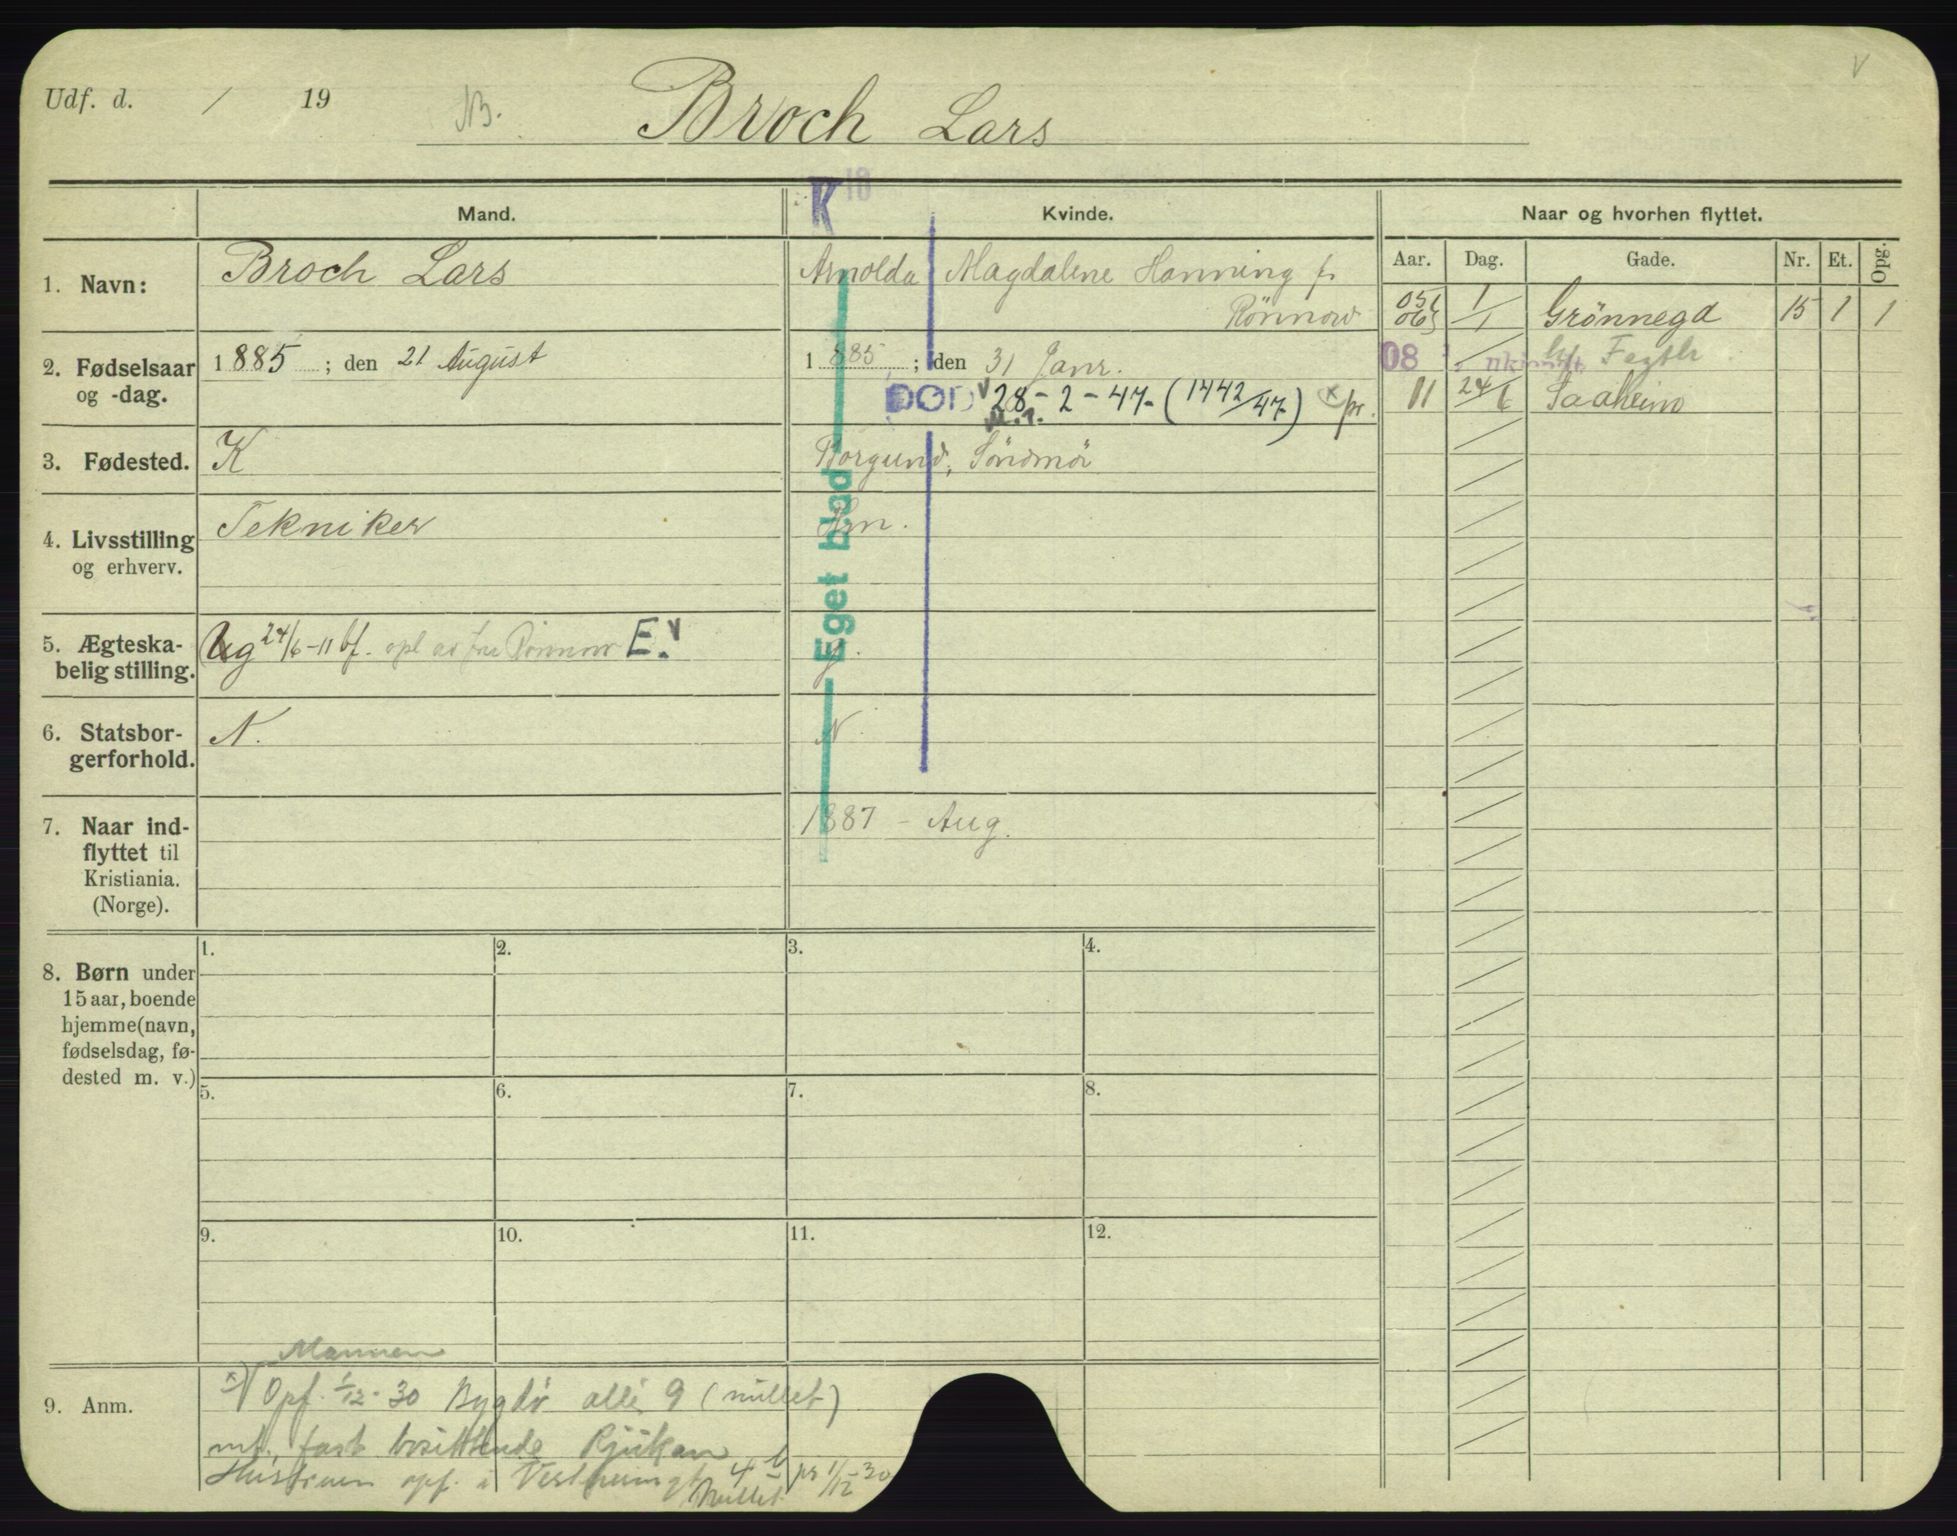 Udf. d. / 19 NB. Broch Lars
K 18
Mand. Kvinde. Naar og hvorhen flyttet.
Aar. Dag. Gade. Nr. Et. Opg.
1. Navn: Broch Lars Arnolda Magdalene Hanning f.
Rönnow
05 06 1/1 Grönnegd 15 1 1
2. Fødselsaar og -dag. 1885; den 21 August 1885; den 31 Janr.
08
DØD 28-2-47- (1442/47) x pr.
11 24/6 Saaheim
3. Fødested. K Borgund, Söndmör
4. Livsstilling og erhverv. Tekniker Hm.
Eget blad
5. Ægteskabelig stilling. Ug 24/6-11 bf. opl av fru Rönnow E. g.
6. Statsborgerforhold. N. N.
7. Naar indflyttet til Kristiania. (Norge). 1887 - Aug.
8. Børn under 15 aar, boende hjemme (navn, fødselsdag, fødested m. v.)
1. 2. 3. 4.
5. 6. 7. 8.
9. 10. 11. 12.
9. Anm.
Mannen
x) Opf. 1/12-30 Bygdö allé 9 (nullet)
mt. fast bosittende Rjukan
Hustruen opf. i Vestheimgt 4 b pr 1/12-30
Nullet